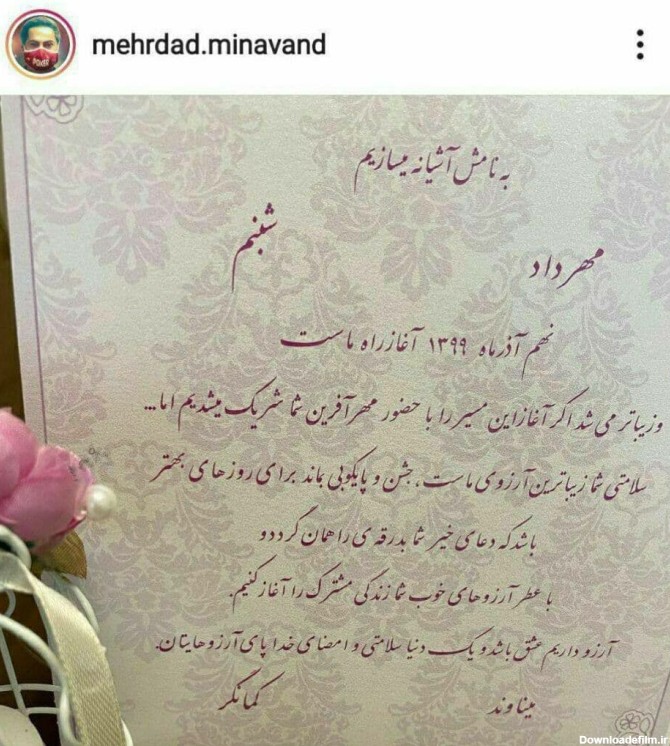 mehrdad.minavand
به نامش آشیانه میسازیم
مهرداد شبنم
نهم آذرماه ۱۳۹۹ آغاز راه ماست
وزیباتر می شد اگر آغاز این مسیر را با حضور مهرآفرین شما شریک میشدیم اما...
سلامتی شما زیباترین آرزوی ماست، جشن و پایکوبی بماند برای روزهای بهتر
باشد که دعای خیر شما بدرقه ی راهمان گردد و
با عطر آرزوهای خوب شما زندگی مشترک را آغاز کنیم.
آرزو داریم عشق باشد و یک دنیا سلامتی و امضای خدا پای آرزوهایتان.
میناوند کمانگر
Downloadefilm.ir